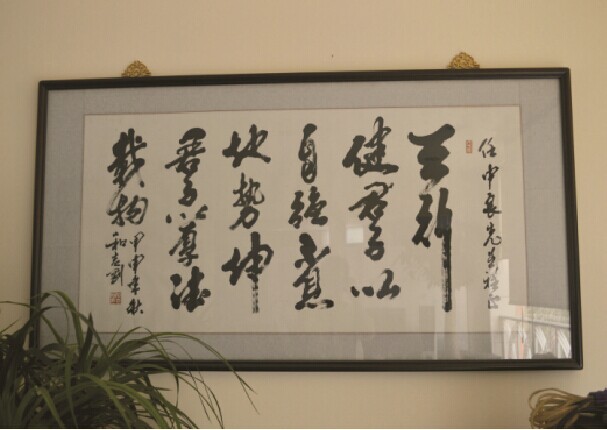 任中良先生雅正
天行
健君子以
自强不息
地势坤
君子以厚德
载物
甲申年秋
和志刚